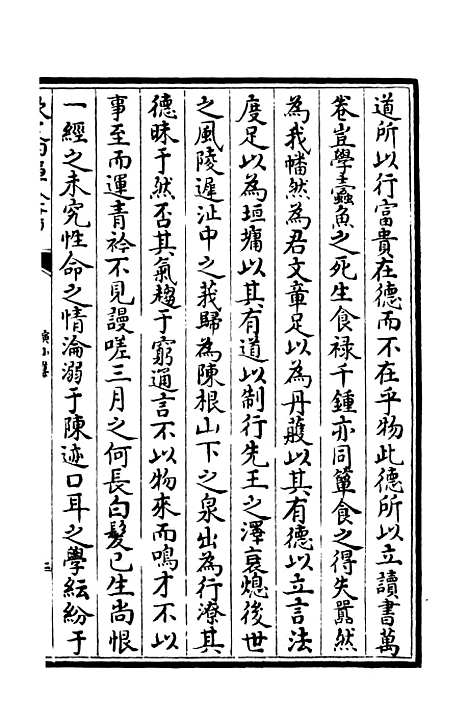 道所以行富貴在德而不在乎物此德所以立讀書萬
卷豈學蠹魚之死生食祿千鍾亦同簞食之得失囂然
為我幡然為君文章足以為丹雘以其有德以立言法
度足以為垣墉以其有道以制行先王之澤衰熄後世
之風陵遲沚中之莪歸為陳根山下之泉出為行潦其
德昧于然否其氣趨于窮通言不以物來而鳴才不以
事至而運青衿不見謾嗟三月之何長白髮已生尚恨
一經之未究性命之情淪溺于陳迹口耳之學紜紛于